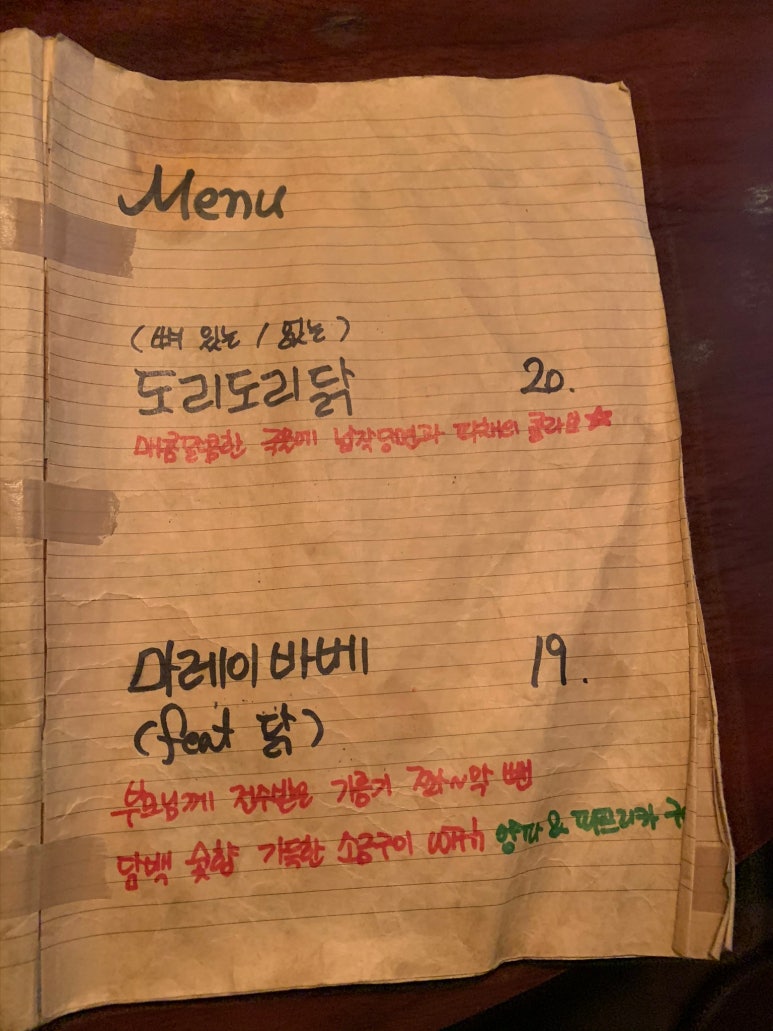 Menu
(뼈 있는 / 없는)
도리도리닭 20.
매콤달콤한 국물에 납작당면과 파채의 콜라보★
마레이바베 19.
(feat 닭)
부모님께 전수받은 기름기 쫘~악 뺀
담백 숯향 가득한 소금구이 with 양파 & 파프리카